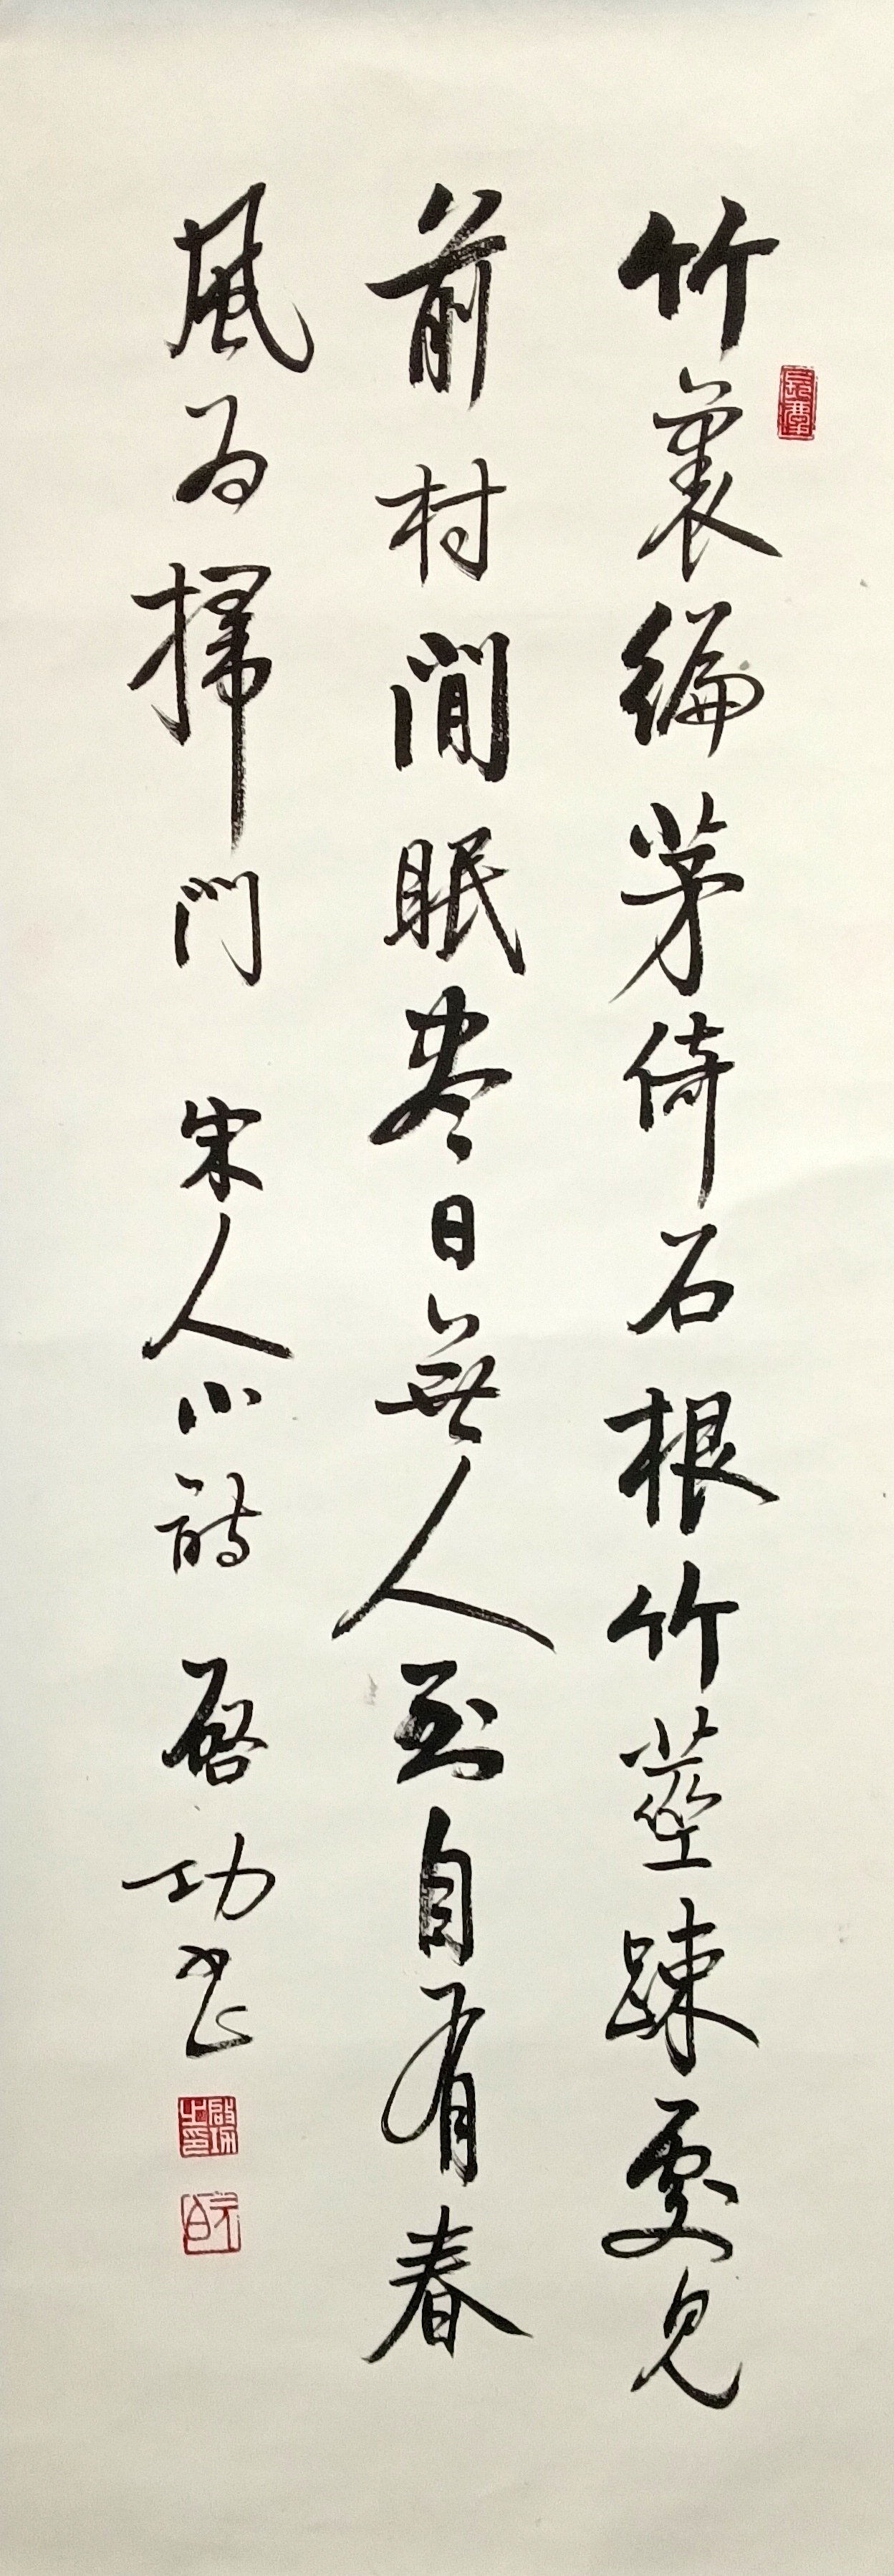 竹裏編茅倚石根竹莖踈處見
前村閒眠盡日無人到自有春
風為掃門 宋人小詩 啓功書
啟功之印
元白